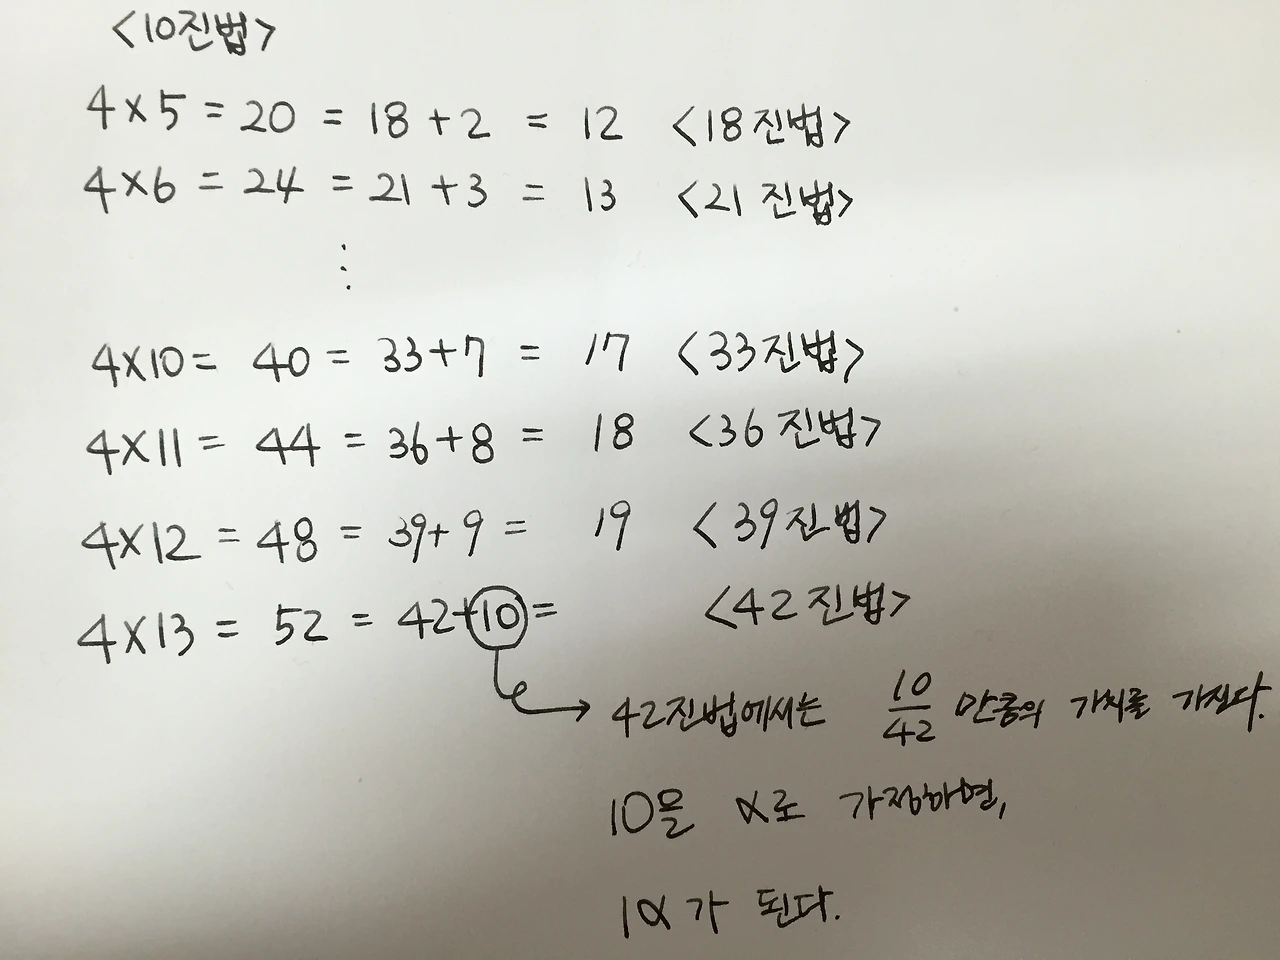 <10진법>
4×5 = 20 = 18+2 = 12 <18진법>
4×6 = 24 = 21+3 = 13 <21 진법>
⋮
4×10= 40 = 33+7 = 17 <33진법>
4×11 = 44 = 36+8 = 18 <36 진법>
4×12 = 48 = 39+9 = 19 <39진법>
4×13 = 52 = 42+10 = <42진법>
42진법에서는 10/42 만큼의 가치를 가진다.
10을 α로 가정하면,
1α가 된다.